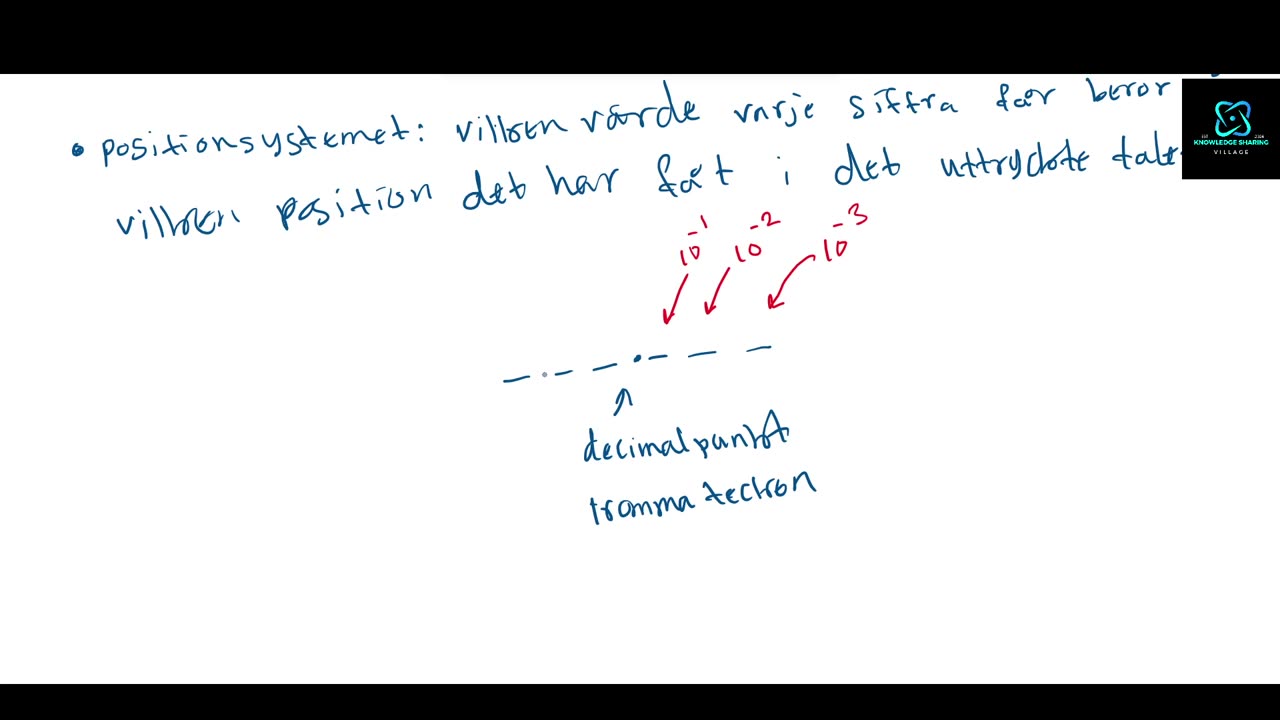 • positionsystemet: vilken värde varje siffra får beror
vilken position det har fåt i det uttryckte tale
10⁻¹ 10⁻² 10⁻³
decimalpunkt
komma tecken
KNOWLEDGE SHARING
VILLAGE